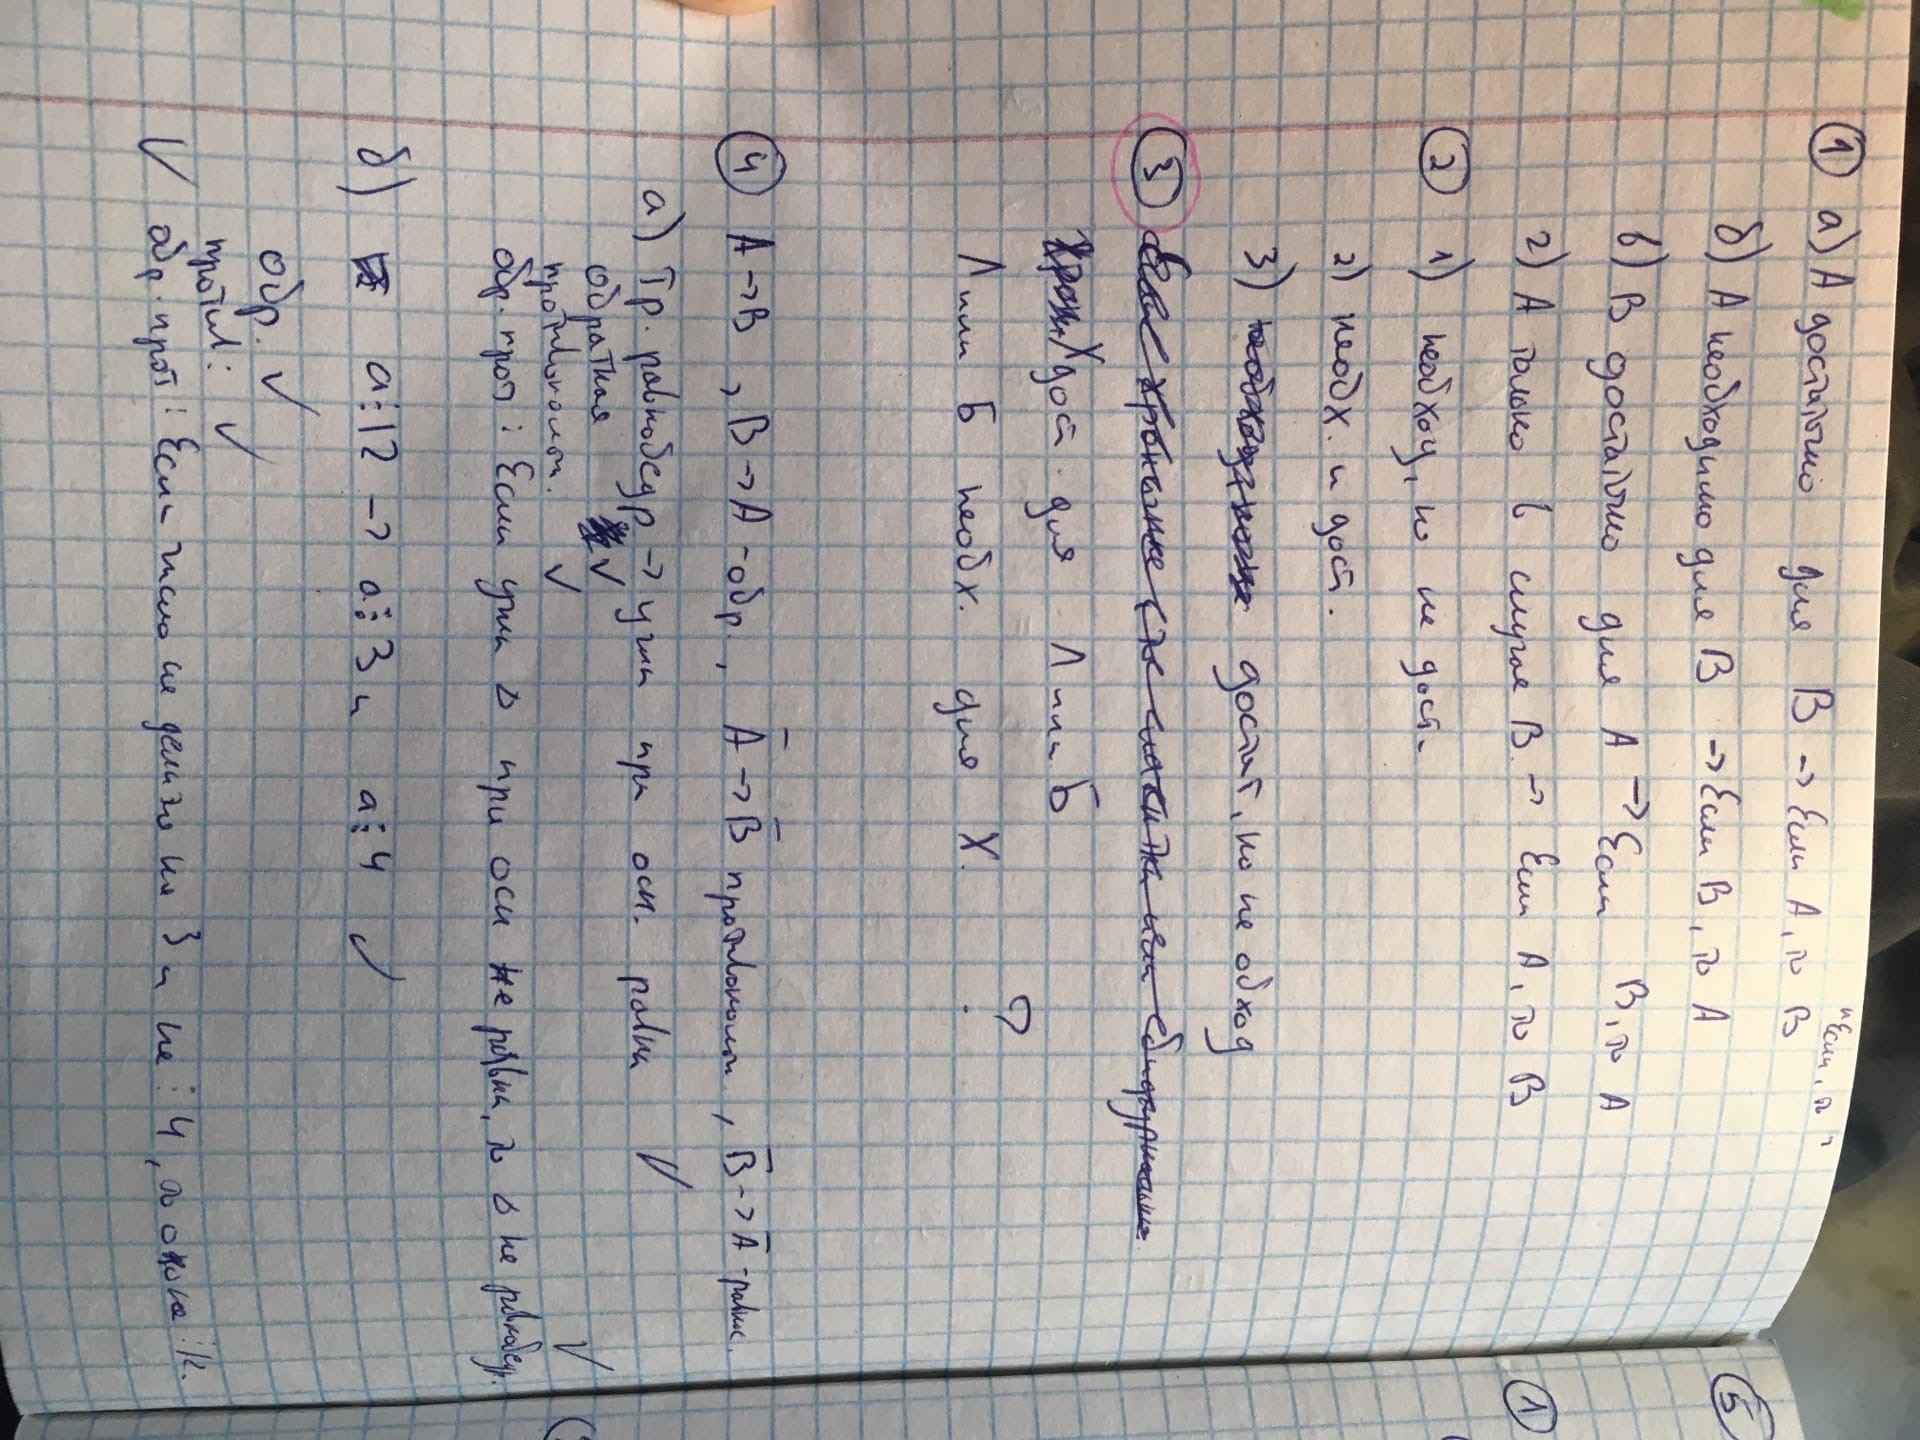 "Если, то"
① а) А достаточно для В → Если А, то В
б) А необходимо для В → Если В, то А
в) В достаточно для А → Если В, то А
г) А только в случае В → Если А, то В
② 1) необход, но не дост.
2) необх. и дост.
3) достат, но не обход
③
Х дост. для Л или Б
Л или Б необх. для Х. ?
④ А → В , В → А - обр. , Ā → B̄ противополож , B̄ → Ā - равнос.
а) Тр. равнобедр → углы при осн. равны ✓
обратная ✓
противополож. ✓
обр. прот : Если углы △ при осн не равны, то △ не равнобедр. ✓
б) a⋮12 → a⋮3 и a⋮4 ✓
обр. ✓
против : ✓
✓ обр. прот : Если число не делится на 3 и не ⋮ 4, то оно не ⋮12.
⑤
①